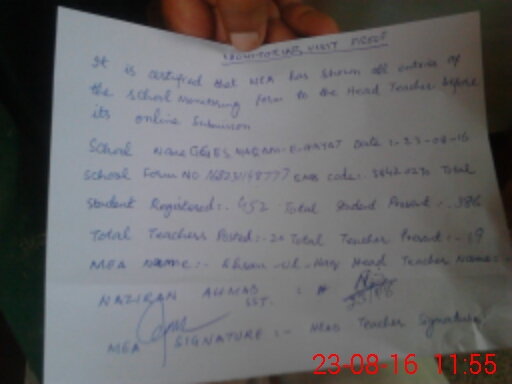 MONITORING VISIT PROOF
It is certified that MEA has shown all entries of
the school monitoring form to the Head Teacher before
its online Submision
School Name GGES Date :- 23-08-16
School Form NO EMIS code:- Total
Student Registered:- 452 Total Student Present:- 386
Total Teachers Posted:- 20 Total Teacher Present:- 19
MEA Name:- Ehsan-ul-Haq Head Teacher Name:-
NAZIRAN AHMAD
SST.
MEA SIGNATURE :- Head Teacher Signature
23-08-16 11:55